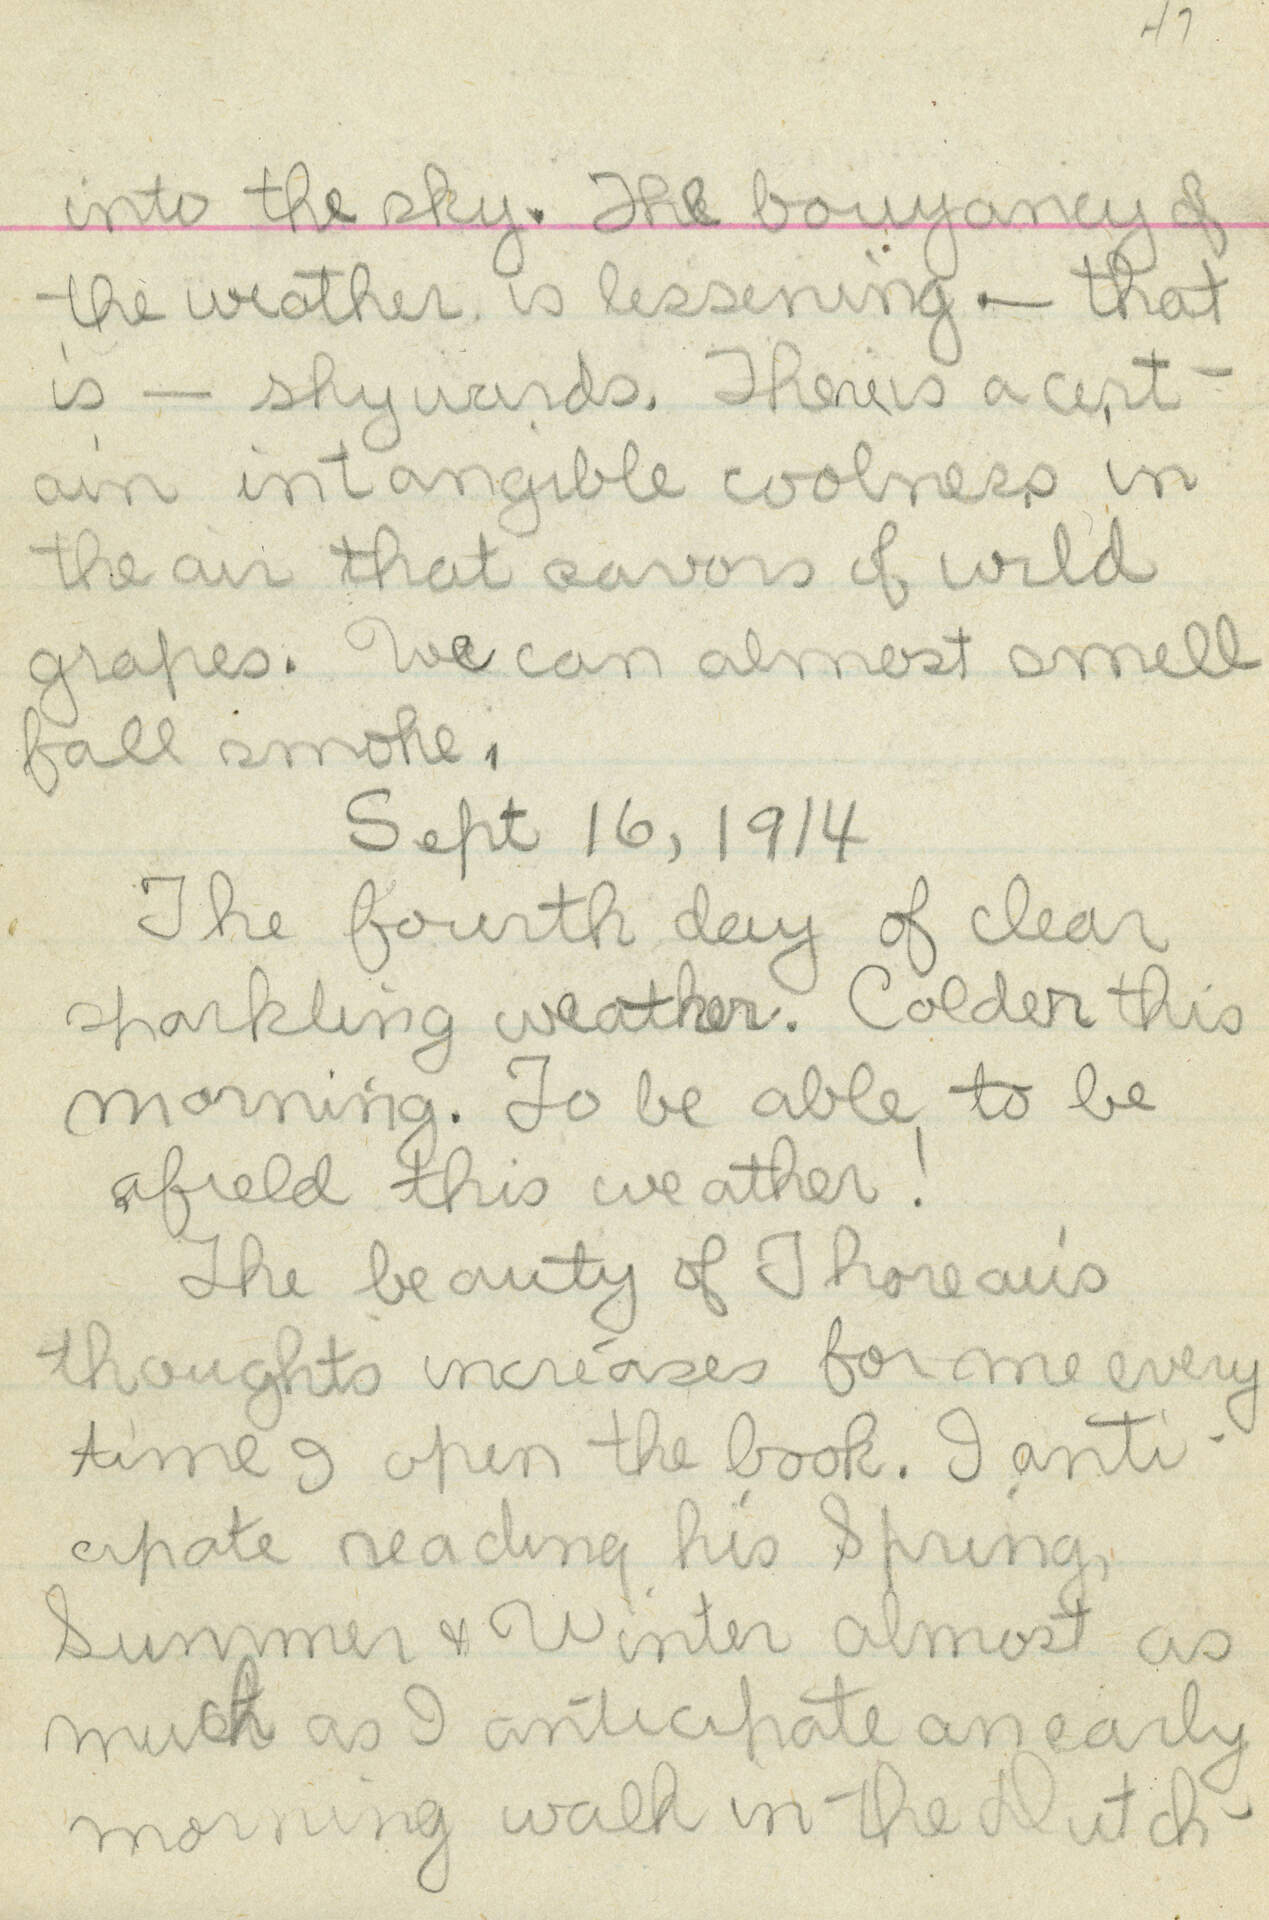 47
into the sky. The bouyancy of
the weather is lessening — that
is — skywards. There is a cert-
ain intangible coolness in
the air that savors of wild
grapes. We can almost smell
fall smoke.
Sept 16, 1914
The fourth day of clear
sparkling weather. Colder this
morning. To be able to be
afield this weather!
The beauty of Thoreau's
thoughts increases for me every
time I open the book. I anti-
cipate reading his Spring,
Summer & Winter almost as
much as I anticipate an early
morning walk in the Dutch-